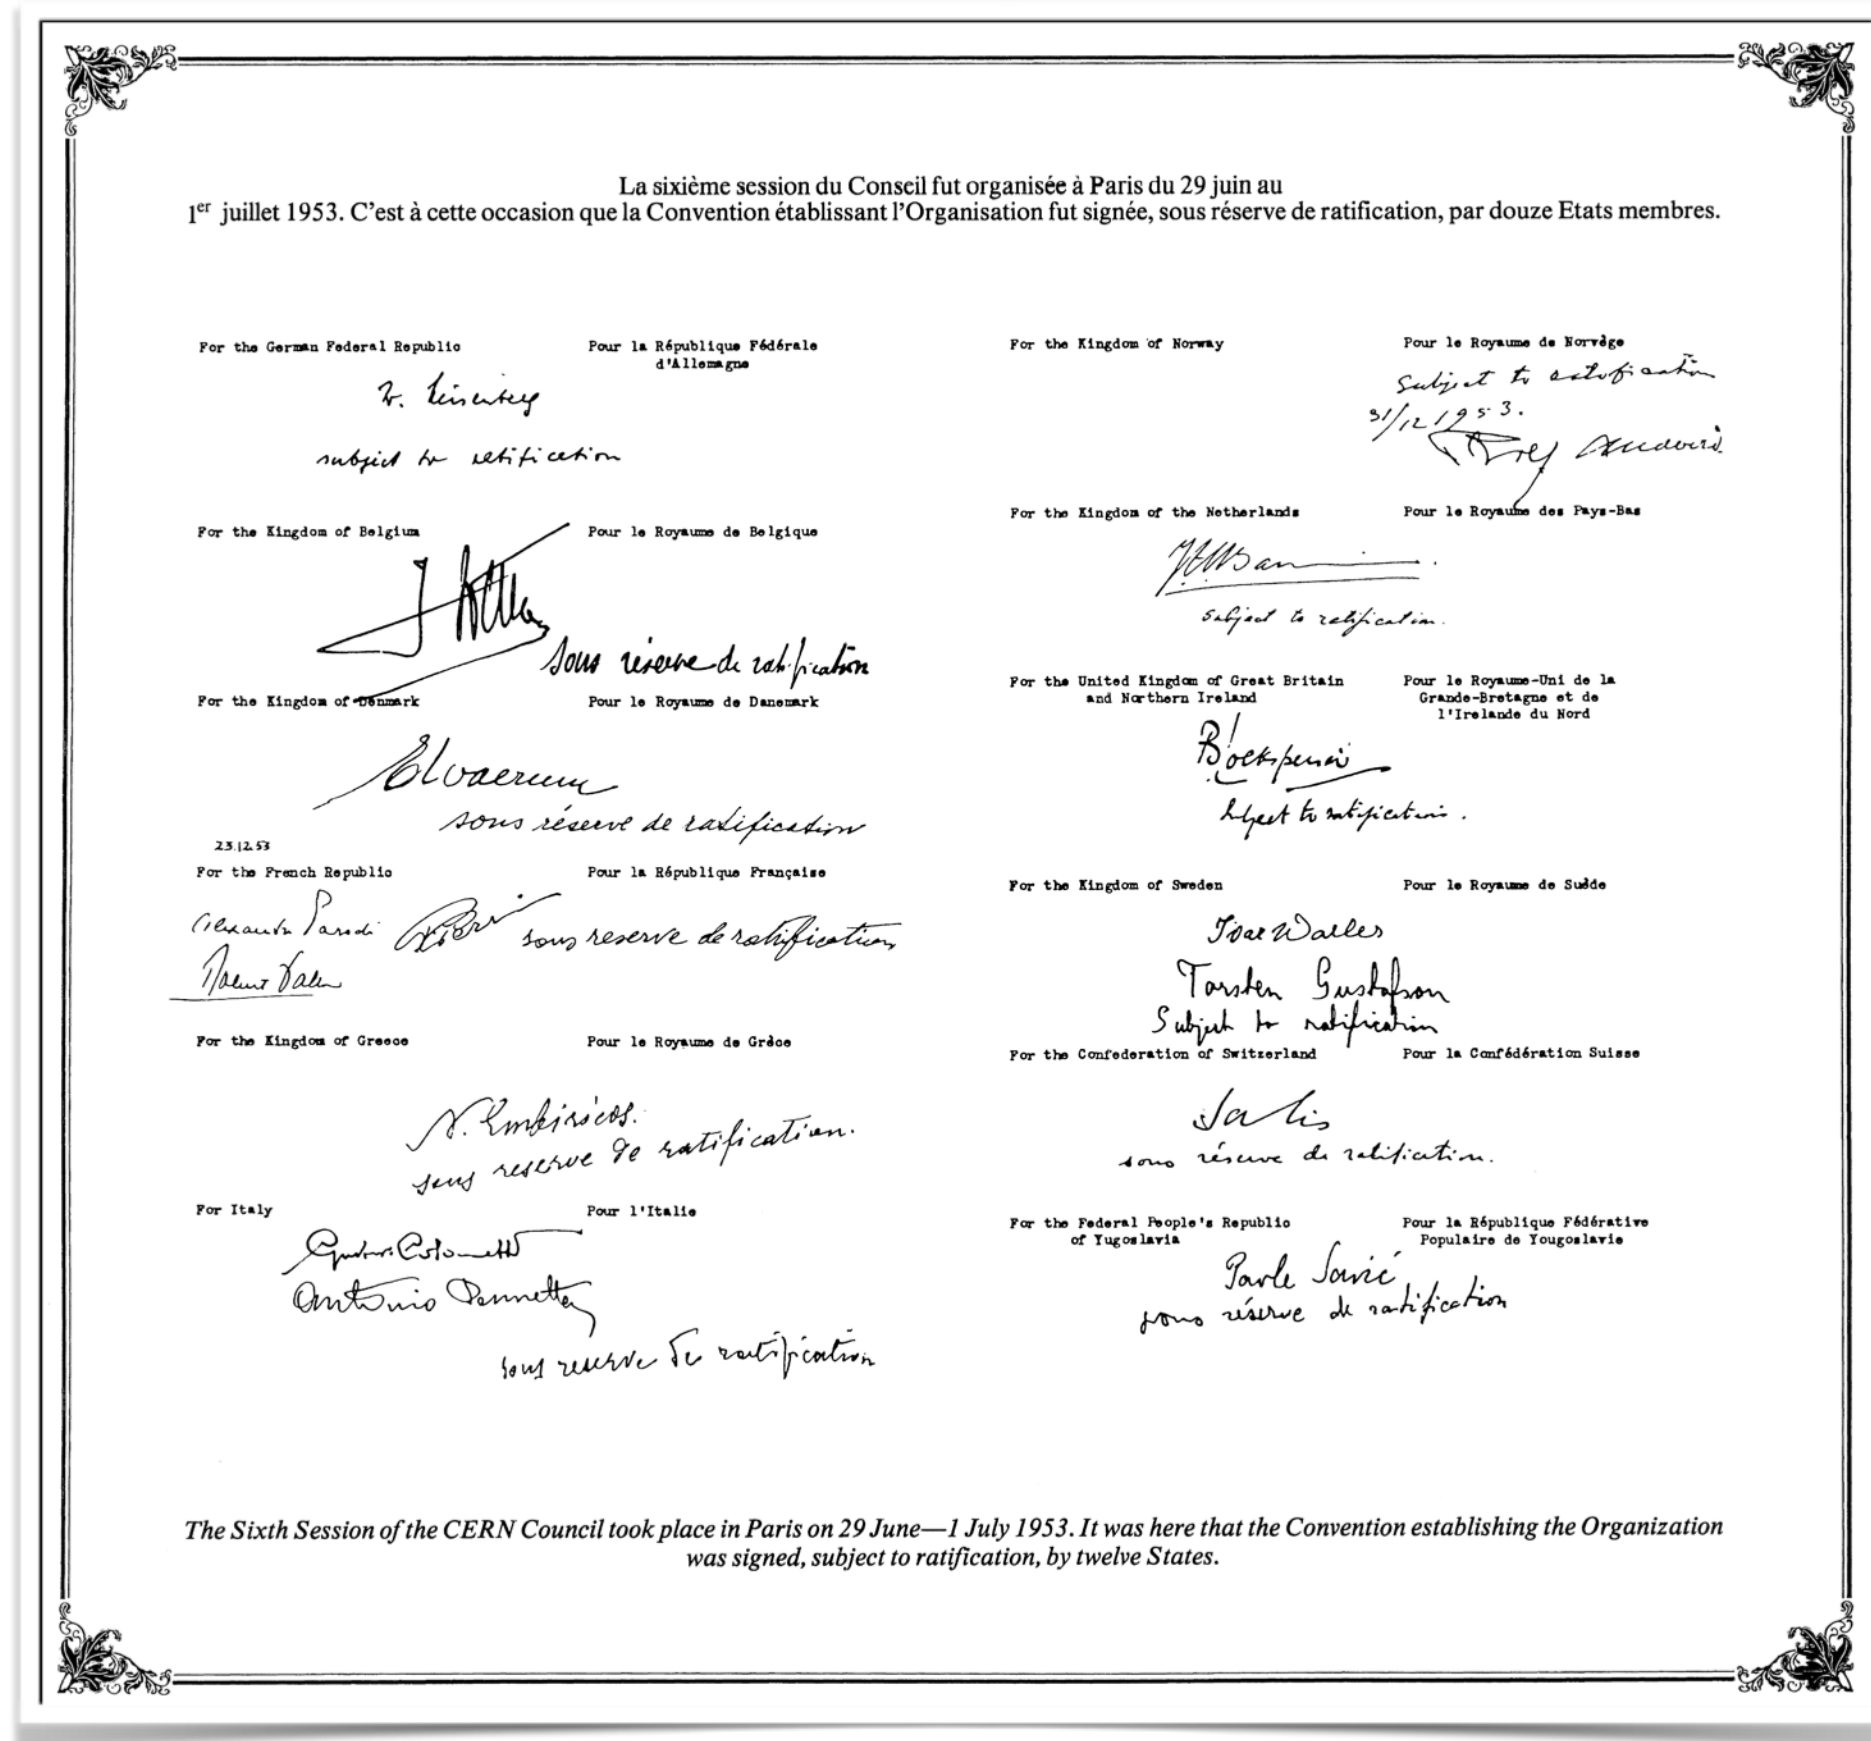 La sixième session du Conseil fut organisée à Paris du 29 juin au
1er juillet 1953. C'est à cette occasion que la Convention établissant l'Organisation fut signée, sous réserve de ratification, par douze Etats membres.
For the German Federal Republic
Pour la République Fédérale
d'Allemagne
W. Heisenberg
subject to ratification
For the Kingdom of Belgium
Pour le Royaume de Belgique
sous réserve de ratification
For the Kingdom of Denmark
Pour le Royaume de Danemark
sous réserve de ratification
23.12.53
For the French Republic
Pour la République Française
Alexandre Parodi
sous reserve de ratification
For the Kingdom of Greece
Pour le Royaume de Grèce
N. Embiricos.
sous reserve de ratification.
For Italy
Pour l'Italie
Gustavo Colonnetti
Antonio Pennetta
sous reserve de ratification
For the Kingdom of Norway
Pour le Royaume de Norvège
Subject to ratification
31/12 1953.
For the Kingdom of the Netherlands
Pour le Royaume des Pays-Bas
subject to ratification.
For the United Kingdom of Great Britain
and Northern Ireland
Pour le Royaume-Uni de la
Grande-Bretagne et de
l'Irelande du Nord
Subject to ratification.
For the Kingdom of Sweden
Pour le Royaume de Suède
Ivar Waller
Torsten Gustafson
Subject to ratification
For the Confederation of Switzerland
Pour la Confédération Suisse
Salis
sous réserve de ratification.
For the Federal People's Republic
of Yugoslavia
Pour la République Fédérative
Populaire de Yougoslavie
Pavle Savić
sous réserve de ratification
The Sixth Session of the CERN Council took place in Paris on 29 June—1 July 1953. It was here that the Convention establishing the Organization
was signed, subject to ratification, by twelve States.